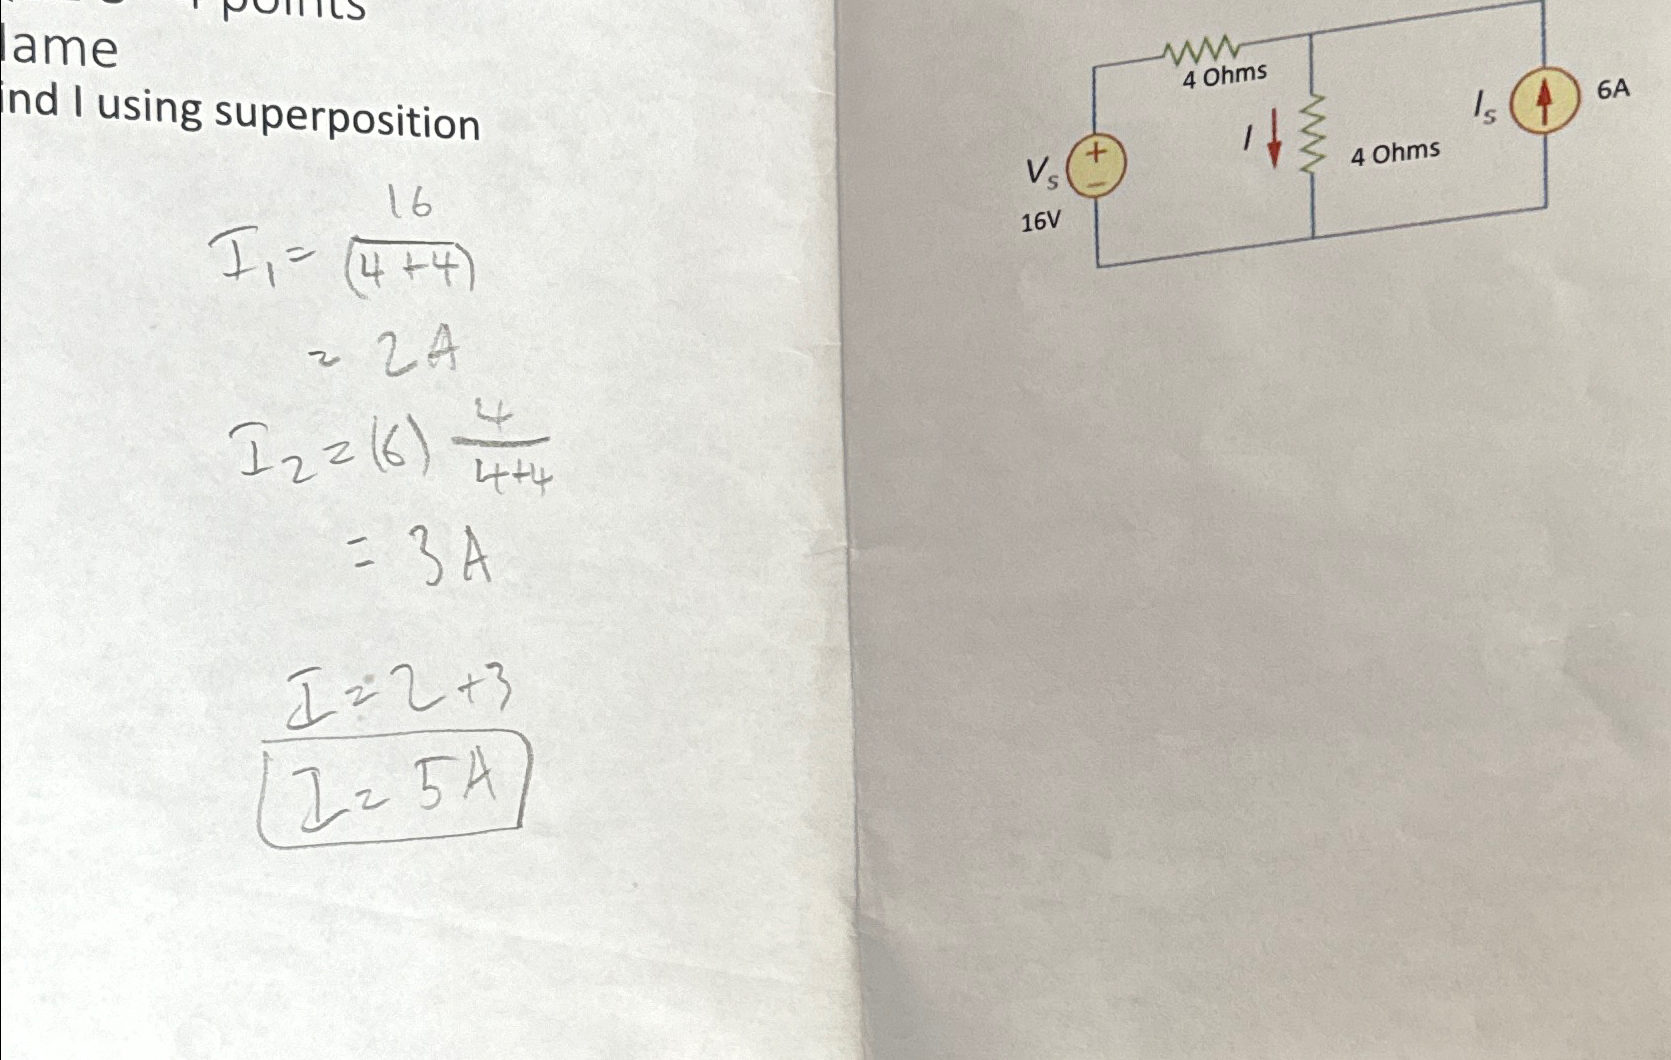 points
ame
ind I using superposition
I₁ = 16/(4+4)
= 2A
I₂ = (6) 4/4+4
= 3A
I = 2+3
I = 5A
4 Ohms
I
4 Ohms
Iₛ
6A
Vₛ
+
−
16V